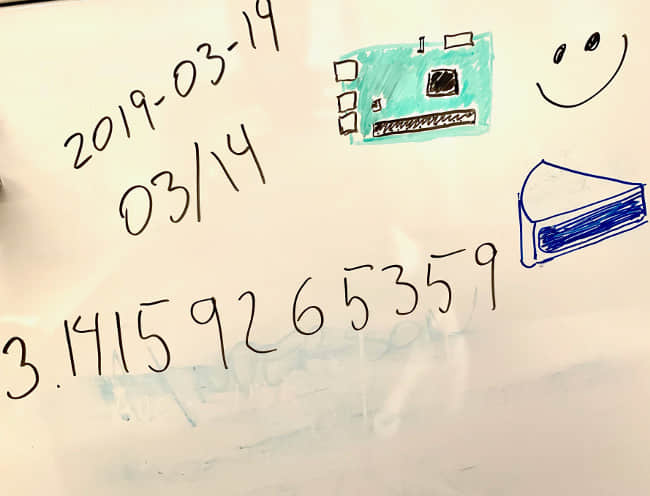 2019-03-14
03/14
3.14159265359